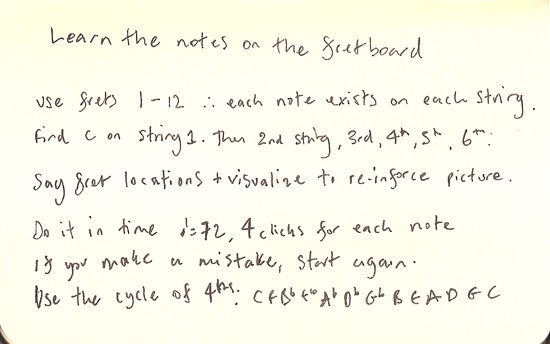 Learn the notes on the fretboard
Use frets 1-12 ∴ each note exists on each string.
Find C on string 1. Then 2nd string, 3rd, 4th, 5th, 6th.
Say fret locations + visualize to re-inforce picture.
Do it in time ♩=72, 4 clicks for each note
If you make a mistake, start again.
Use the cycle of 4ths: C F Bb Eb Ab Db Gb B E A D G C